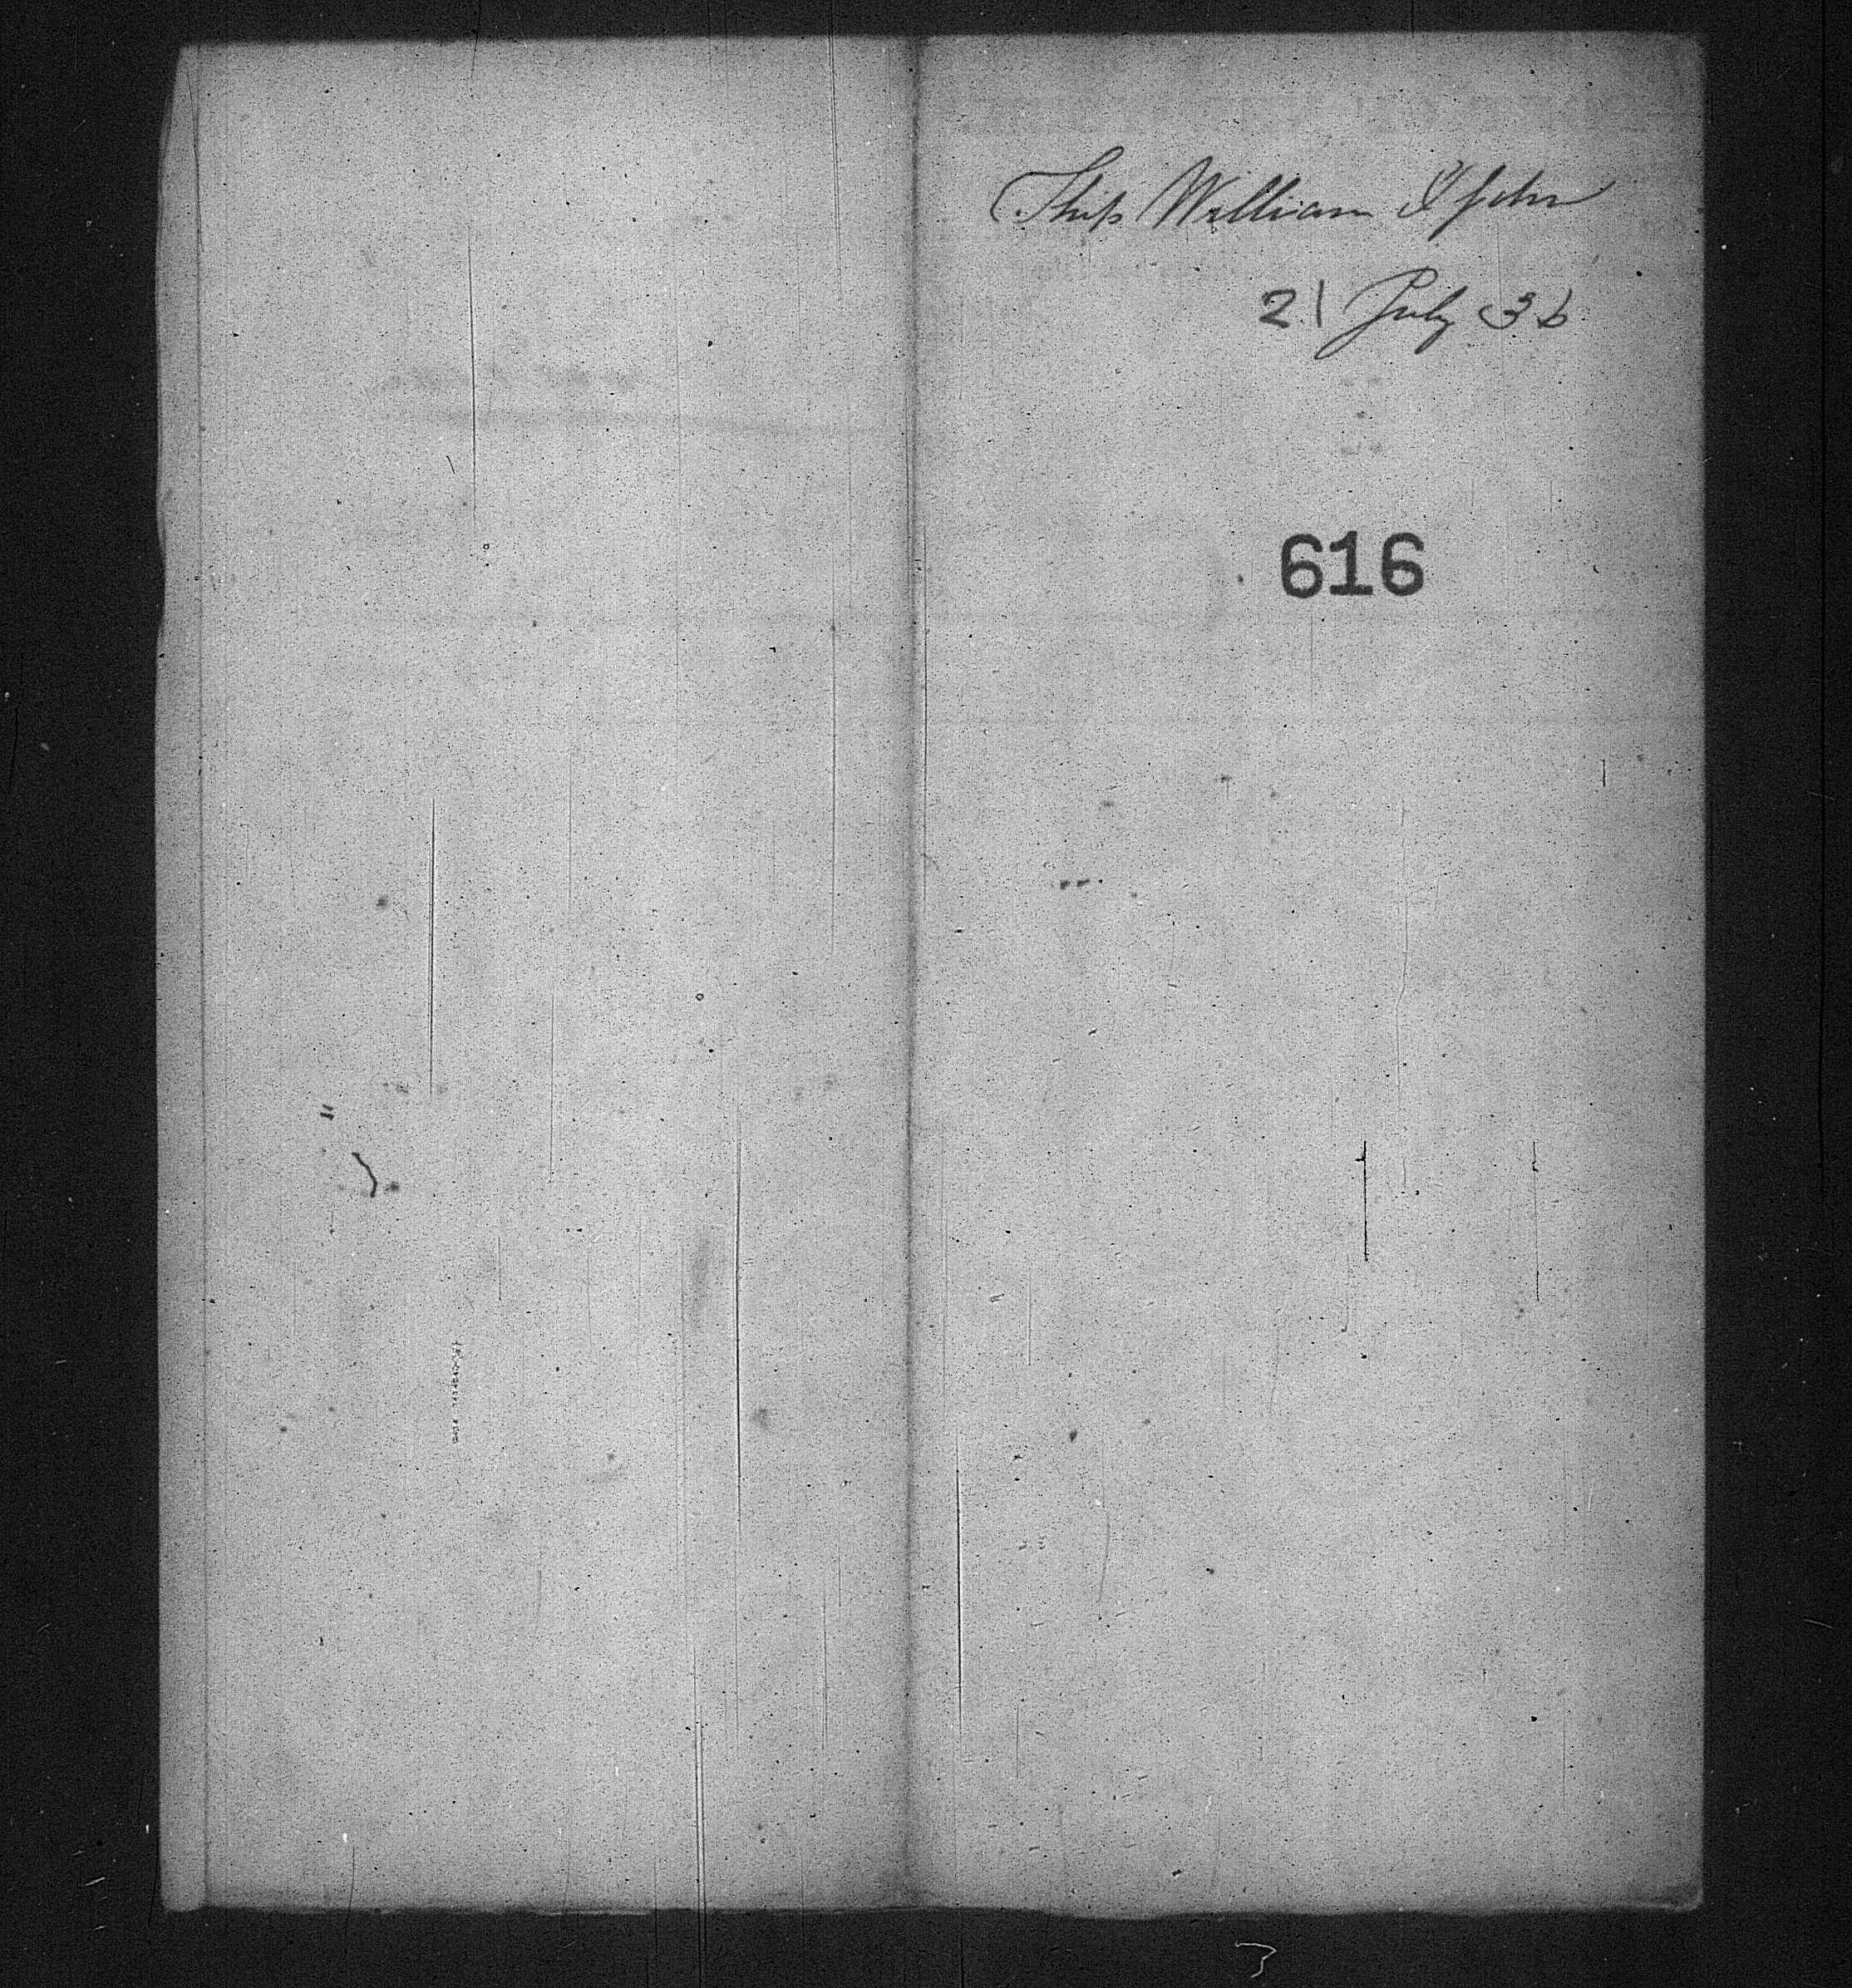 Ship William & John
21 July 36
616